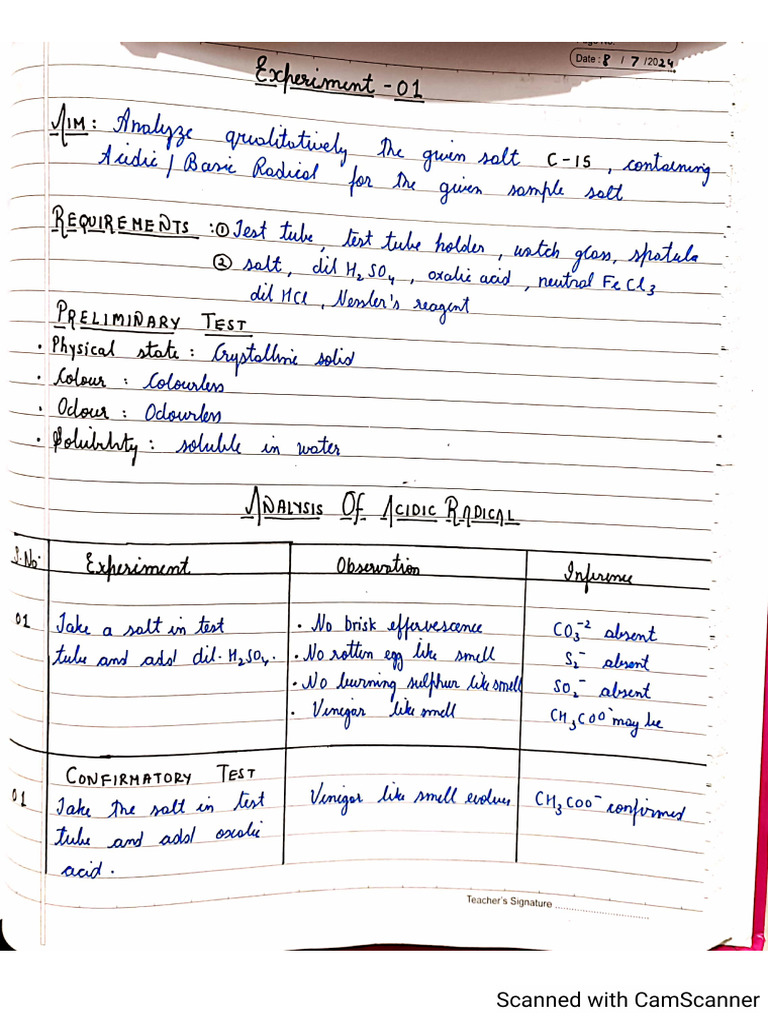 Date: 8 / 7 /2024
Experiment - 01
AIM: Analyze qualitatively the given salt C-15, containing
Acidic / Basic Radical for the given sample salt
REQUIREMENTS : ① Test tube, test tube holder, watch glass, spatula
② salt, dil H₂SO₄, oxalic acid, neutral FeCl₃
dil HCl, Nessler's reagent
PRELIMINARY TEST
• Physical state : Crystalline solid
• Colour : Colourless
• Odour : Odourless
• Solubility : soluble in water
ANALYSIS OF ACIDIC RADICAL
S.No. Experiment Observation Inference
01 Take a salt in test • No brisk effervescence CO₃⁻² absent
tube and add dil. H₂SO₄. • No rotten egg like smell S₂⁻ absent
• No burning sulphur like smell SO₂⁻ absent
• Vinegar like smell CH₃COO⁻ may be
CONFIRMATORY TEST
01 Take the salt in test Vinegar like smell evolves CH₃COO⁻ confirmed
tube and add oxalic
acid.
Teacher's Signature
Scanned with CamScanner